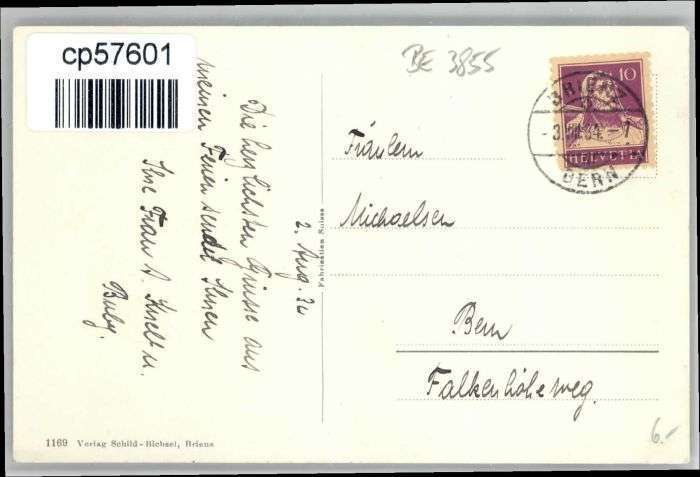 cp57601
BE 3855
10
HELVETIA
BRIENZ
BERN
2. Aug. 34
Die herzlichsten Grüsse aus
meinen Ferien sendet Ihnen
Ihre Frau A.
Buby.
Fabrication Suisse
Fräulein
Michaelsen
Bern
Falkenhöheweg.
6.-
1169 Verlag Schild-Bichsel, Brienz